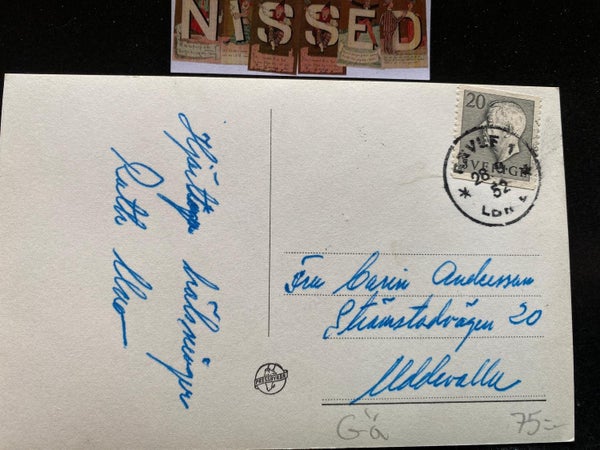 NISSED
20
SVERIGE
GÄVLE 1
52
LBR
Hjärtliga hälsningar
Ruth
Fru Carin Andersson
Strömstadvägen 20
Uddevalla
PRESSBYRÅN
Gä
75:-